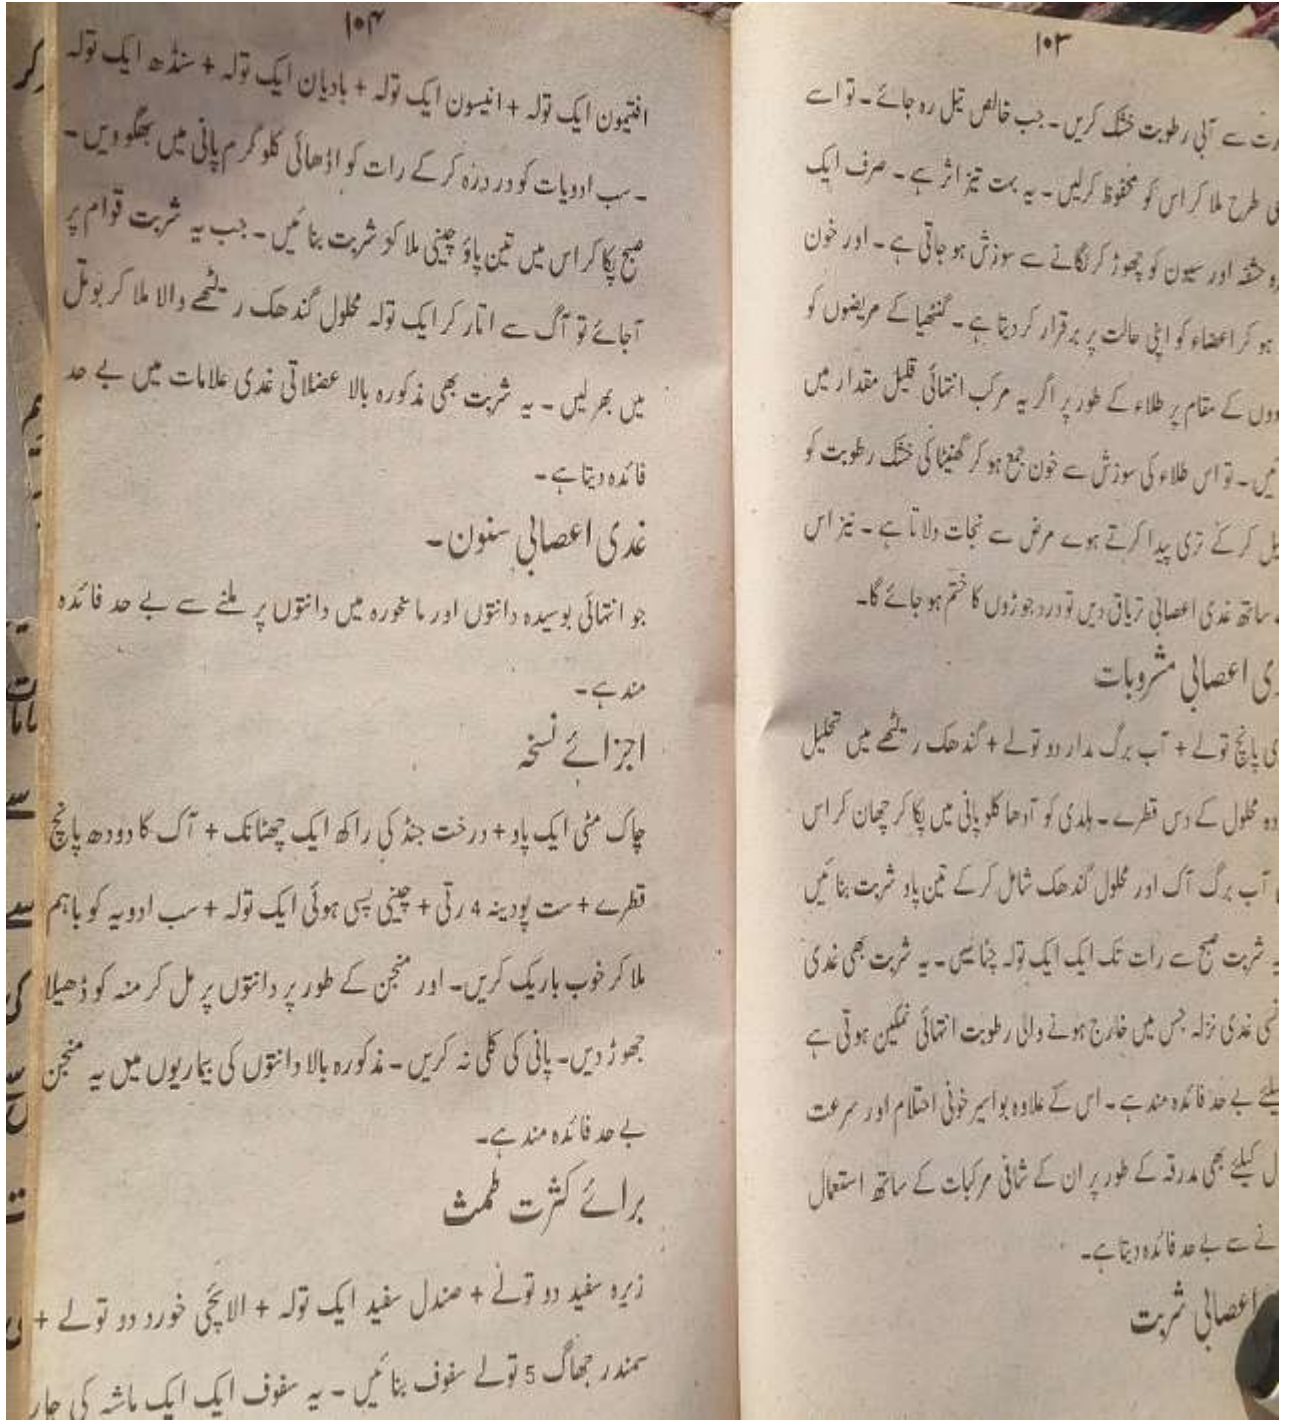 ۱۰۳
سے آبی رطوبت خشک کریں۔ جب خالص تیل رہ جائے۔ تو اسے
طرح ملا کر اس کو محفوظ کرلیں۔ یہ بہت تیز اثر ہے۔ صرف ایک
حشفہ اور سیون کو چھوڑ کر لگانے سے سوزش ہو جاتی ہے۔ اور خون
ہو کر اعضاء کو اپنی حالت پر برقرار کر دیتا ہے۔ گنٹھیا کے مریضوں کو
کے مقام پر طلاء کے طور پر اگر یہ مرکب انتہائی قلیل مقدار میں
میں۔ تو اس طلاء کی سوزش سے خون جمع ہو کر گھنیٹا کی خشک رطوبت کو
کر کے تری پیدا کرتے ہوے مرض سے نجات دلاتا ہے۔ نیز اس
ساتھ غدی اعصابی تریاق دیں تو درد جوڑوں کا ختم ہو جائے گا۔
اعصابی مشروبات
پانچ تولے + آب برگ مدار دو تولے + گندھک ریٹھے میں تحلیل
محلول کے دس قطرے۔ ہلدی کو آدھا کلو پانی میں پکا کر چھان کر اس
آب برگ آک اور محلول گندھک شامل کرکے تین پاو شربت بنائیں
شربت صبح سے رات تک ایک ایک تولہ چٹائیں۔ یہ شربت بھی غدی
غدی نزلہ جس میں خارج ہونے والی رطوبت انتہائی نمکین ہوتی ہے
بے حد فائدہ مند ہے۔ اس کے علاوہ بواسیر خونی احتلام اور سرعت
کیلئے بھی مدرقہ کے طور پر ان کے شافی مرکبات کے ساتھ استعمال
سے بے حد فائدہ دیتا ہے۔
اعصابی شربت
۱۰۴
افتیمون ایک تولہ + انیسون ایک تولہ + بادیان ایک تولہ + سنڈھ ایک تولہ
۔ سب ادویات کو دردرہ کرکے رات کو اڈھائی کلو گرم پانی میں بھگو دیں۔
صبح پکا کر اس میں تین پاؤ چینی ملا کر شربت بنائیں۔ جب یہ شربت قوام پر
آجائے تو آگ سے اتار کر ایک تولہ محلول گندھک ریٹھے والا ملا کر بوتل
میں بھر لیں۔ یہ شربت بھی مذکورہ بالا عضلاتی غدی علامات میں بے حد
فائدہ دیتا ہے۔
غدی اعصابی سنون۔
جو انتہائی بوسیدہ دانتوں اور ماخورہ میں دانتوں پر ملنے سے بے حد فائدہ
مند ہے۔
اجزائے نسخہ
چاک مٹی ایک پاو + درخت جنڈ کی راکھ ایک چھٹانک + آک کا دودھ پانچ
قطرے + ست پودینہ 4 رتی + چینی پسی ہوئی ایک تولہ + سب ادویہ کو باہم
ملا کر خوب باریک کریں۔ اور منجن کے طور پر دانتوں پر مل کر منہ کو ڈھیلا
چھوڑ دیں۔ پانی کی کلی نہ کریں۔ مذکورہ بالا دانتوں کی بیماریوں میں یہ منجن
بے حد فائدہ مند ہے۔
برائے کثرت طمث
زیرہ سفید دو تولے + صندل سفید ایک تولہ + الائچی خورد دو تولے +
سمندر جھاگ 5 تولے سفوف بنائیں۔ یہ سفوف ایک ایک ماشہ کی چار